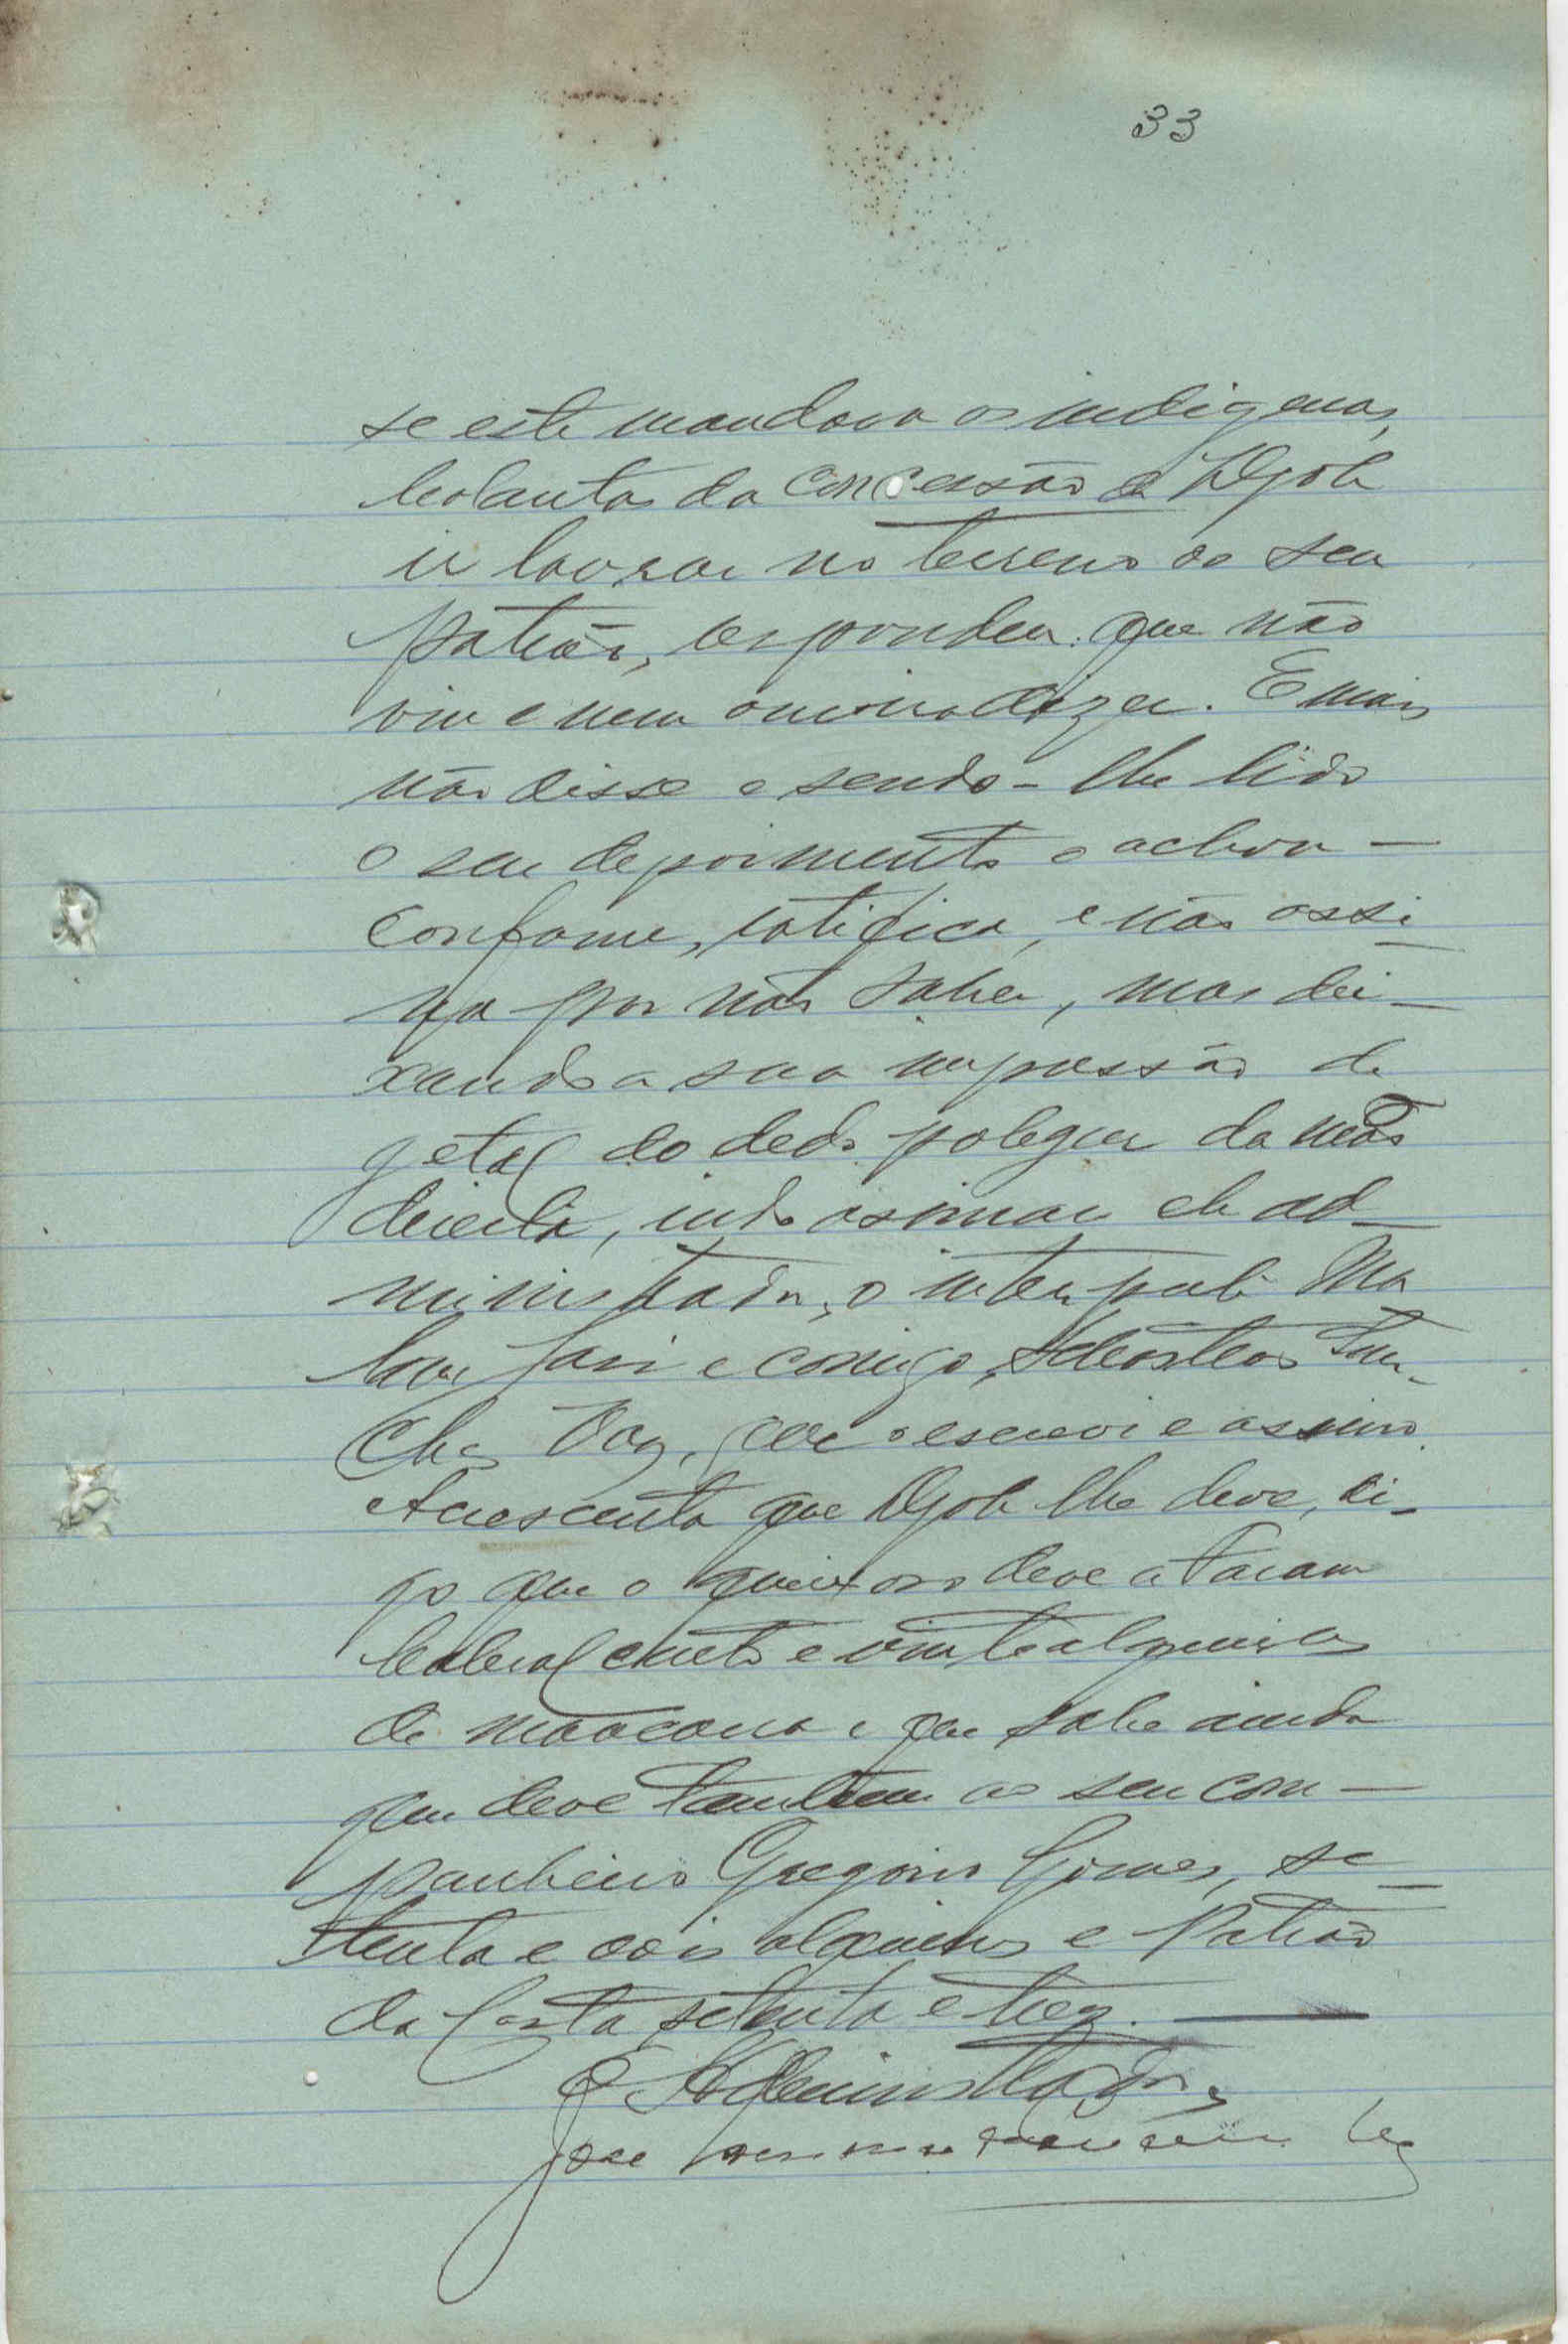 33
se este mandava os indigenas,
balantas da concensão de Djobe
ir lavrar no terreno do seu
patrão, respondeu: que não
viu e nem ouvira dizer. E mais
não disse e sendo-lhe lido
o seu depoimento o achou —
conforme, ratifica, e não assi-
na por não saber, mas dei-
xando a sua impressão di
gital do dedo polegar da mão
direita, indo assinar ele ad-
ministrador, o interprete Ma
e comigo,
Vaz, que o escrevi e assino.
Acrescenta que Djobe lhe deve, di-
go que o queixoso deve a
cento e vinte alqueires
de mancarra e que sabe ainda
que deve tambem ao seu com-
panheiro Gregorio Gomes, se-
tenta e dois alqueires e Patrão
da Costa setenta e trez. —
O Administrador,
José